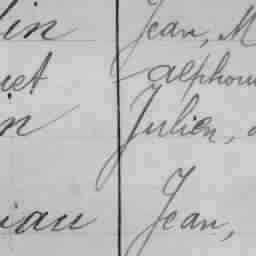 in Jean, M
uet alphon
in Julien,
iau Jean,